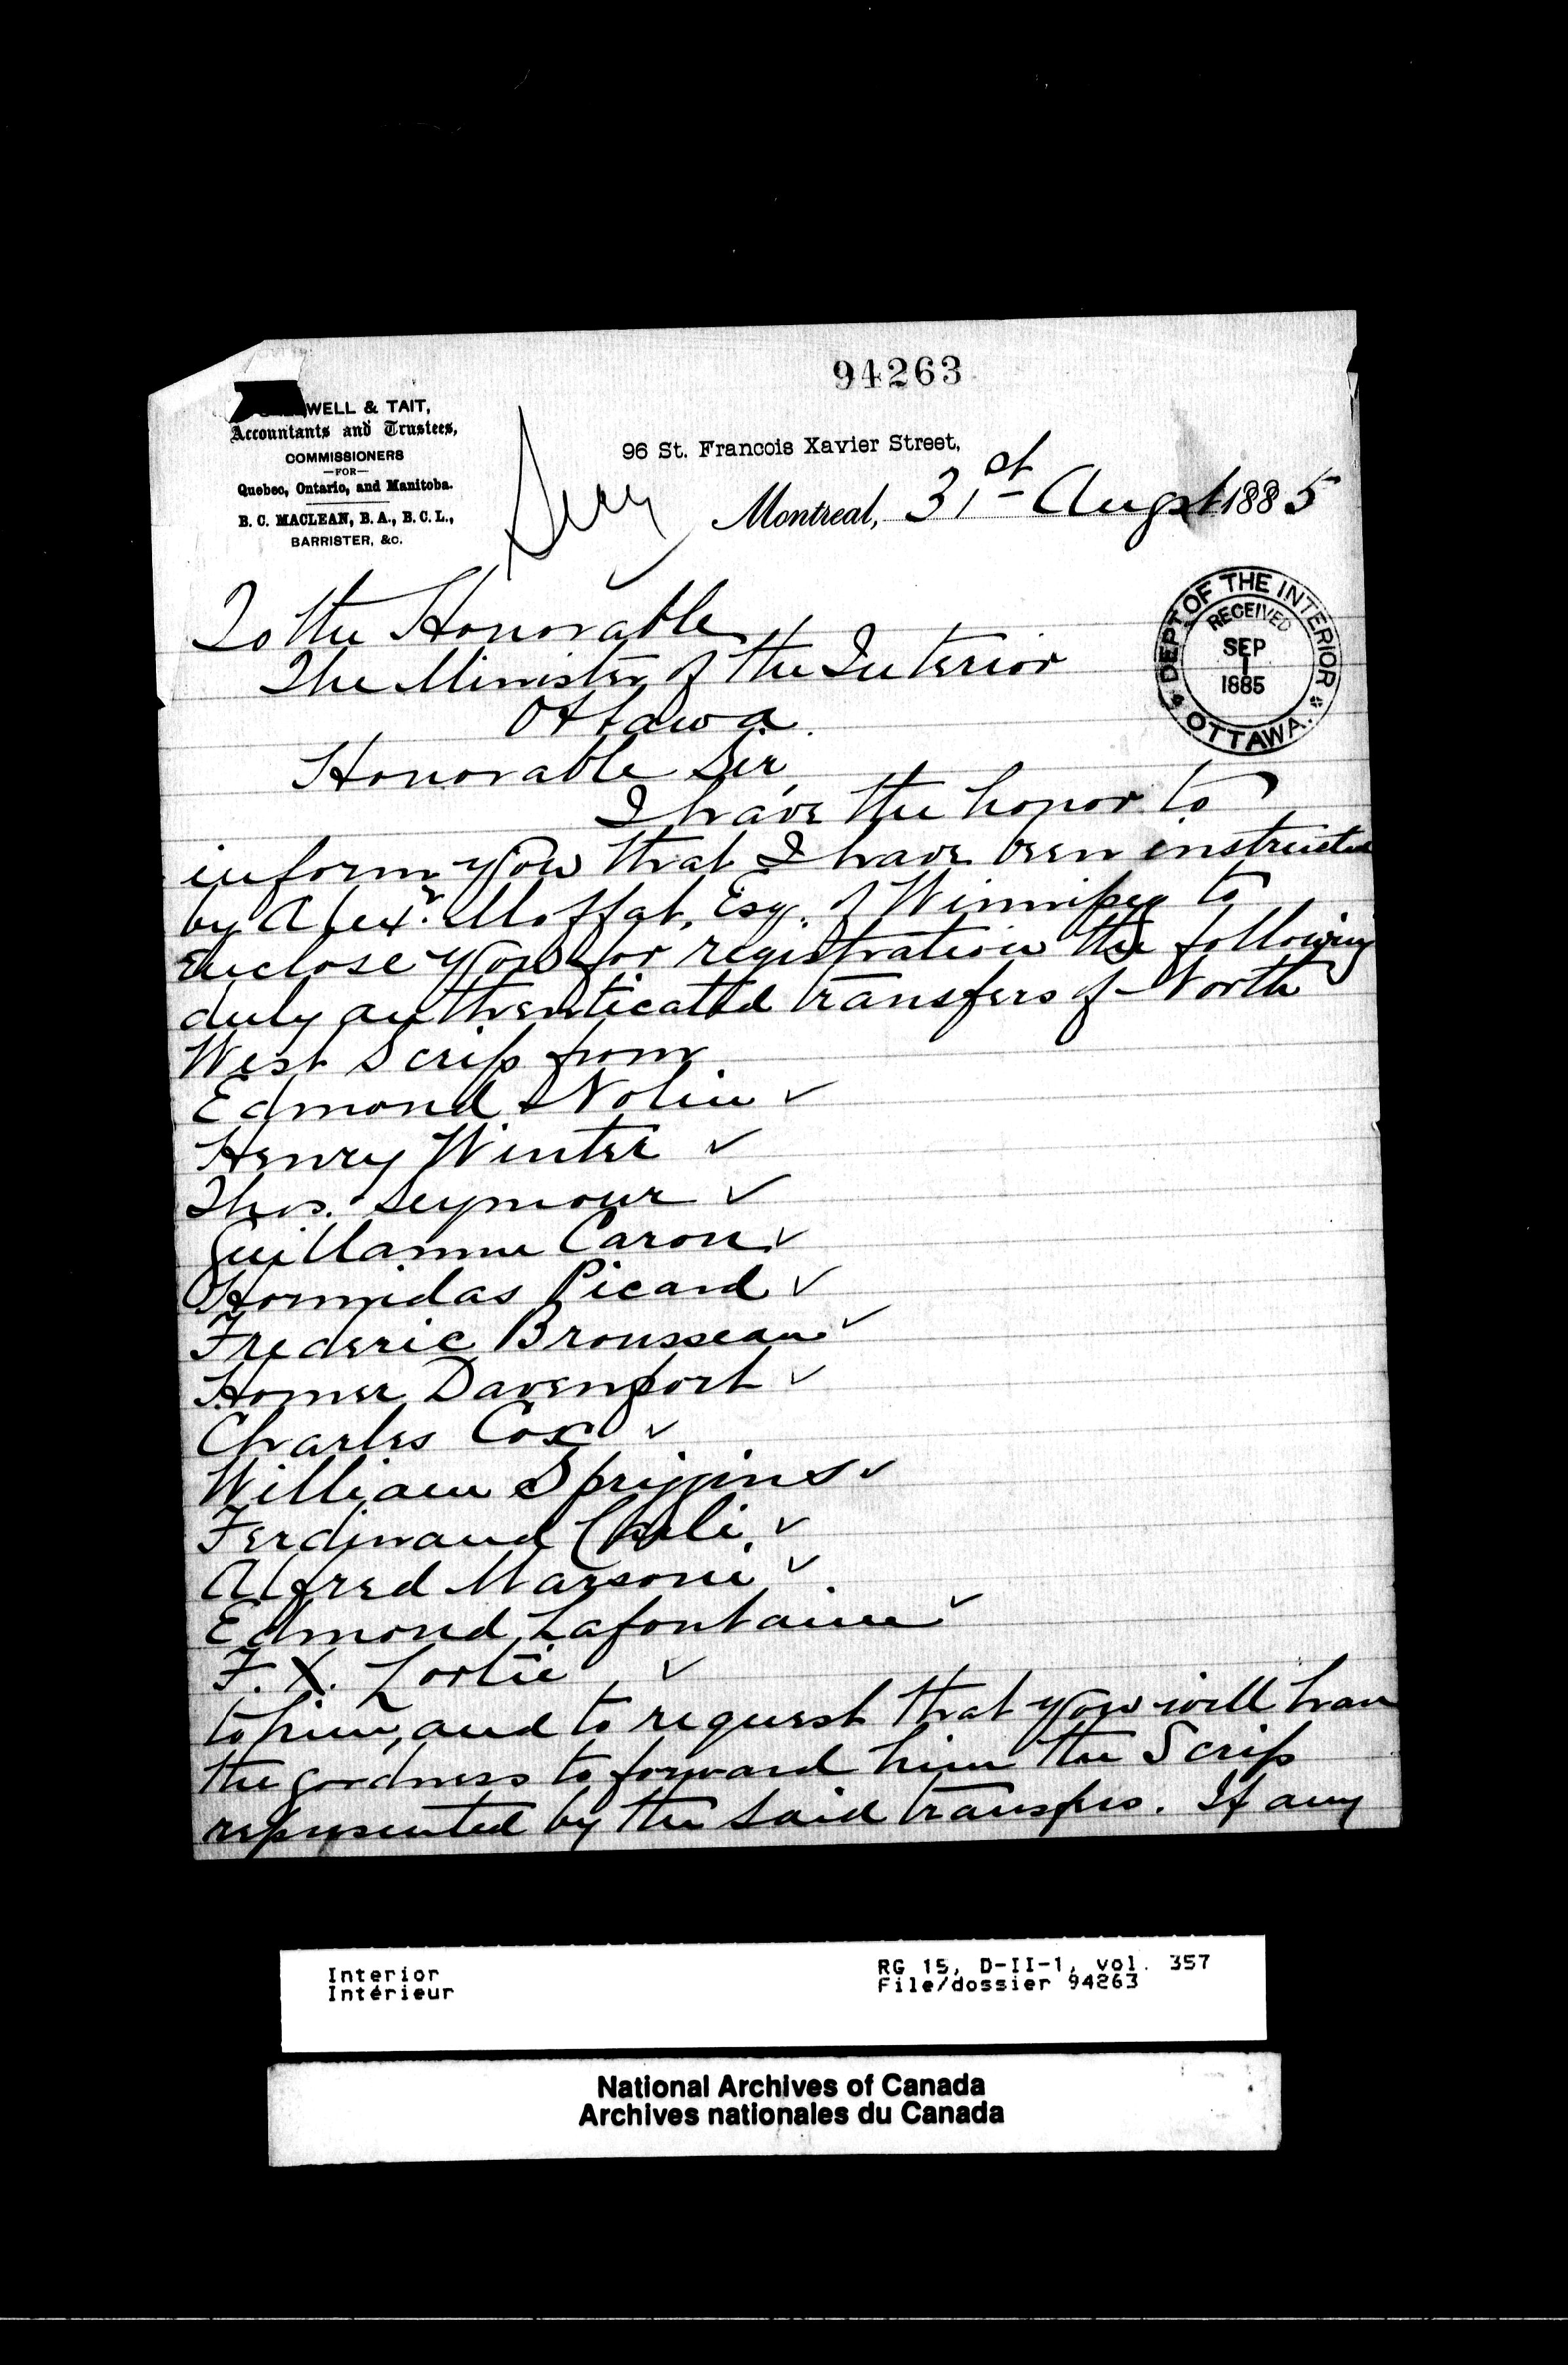 94263
WELL & TAIT,
Accountants and Trustees,
COMMISSIONERS
—FOR—
Quebec, Ontario, and Manitoba.
B. C. MACLEAN, B.A., B.C.L.,
BARRISTER, &c.
96 St. Francois Xavier Street,
Montreal, 31st Augst 1885
DEPT OF THE INTERIOR
RECEIVED
SEP
1
1885
OTTAWA.
To the Honorable
The Minister of the Interior
Ottawa.
Honorable Sir,
I have the honor to
inform you that I have been instructed
by Alexr. Moffat, Esq. of Winnipeg to
enclose you for registration the following
duly authenticated transfers of North
West Scrip from
Edmond Nolin ✓
Henry Winter ✓
Thos. Seymour ✓
Guillaume Caron ✓
Hormidas Picard ✓
Frederic Brousseau ✓
Homer Davenport ✓
Charles Cox ✓
William Spriggins ✓
Ferdinand ✓
Alfred ✓
Edmond Lafontaine ✓
F. X. Lortie ✓
to him, and to request that you will have
the goodness to forward him the Scrip
represented by the said transfers. If any
Interior
Intérieur
RG 15, D-II-1, vol. 357
File/dossier 94263
National Archives of Canada
Archives nationales du Canada